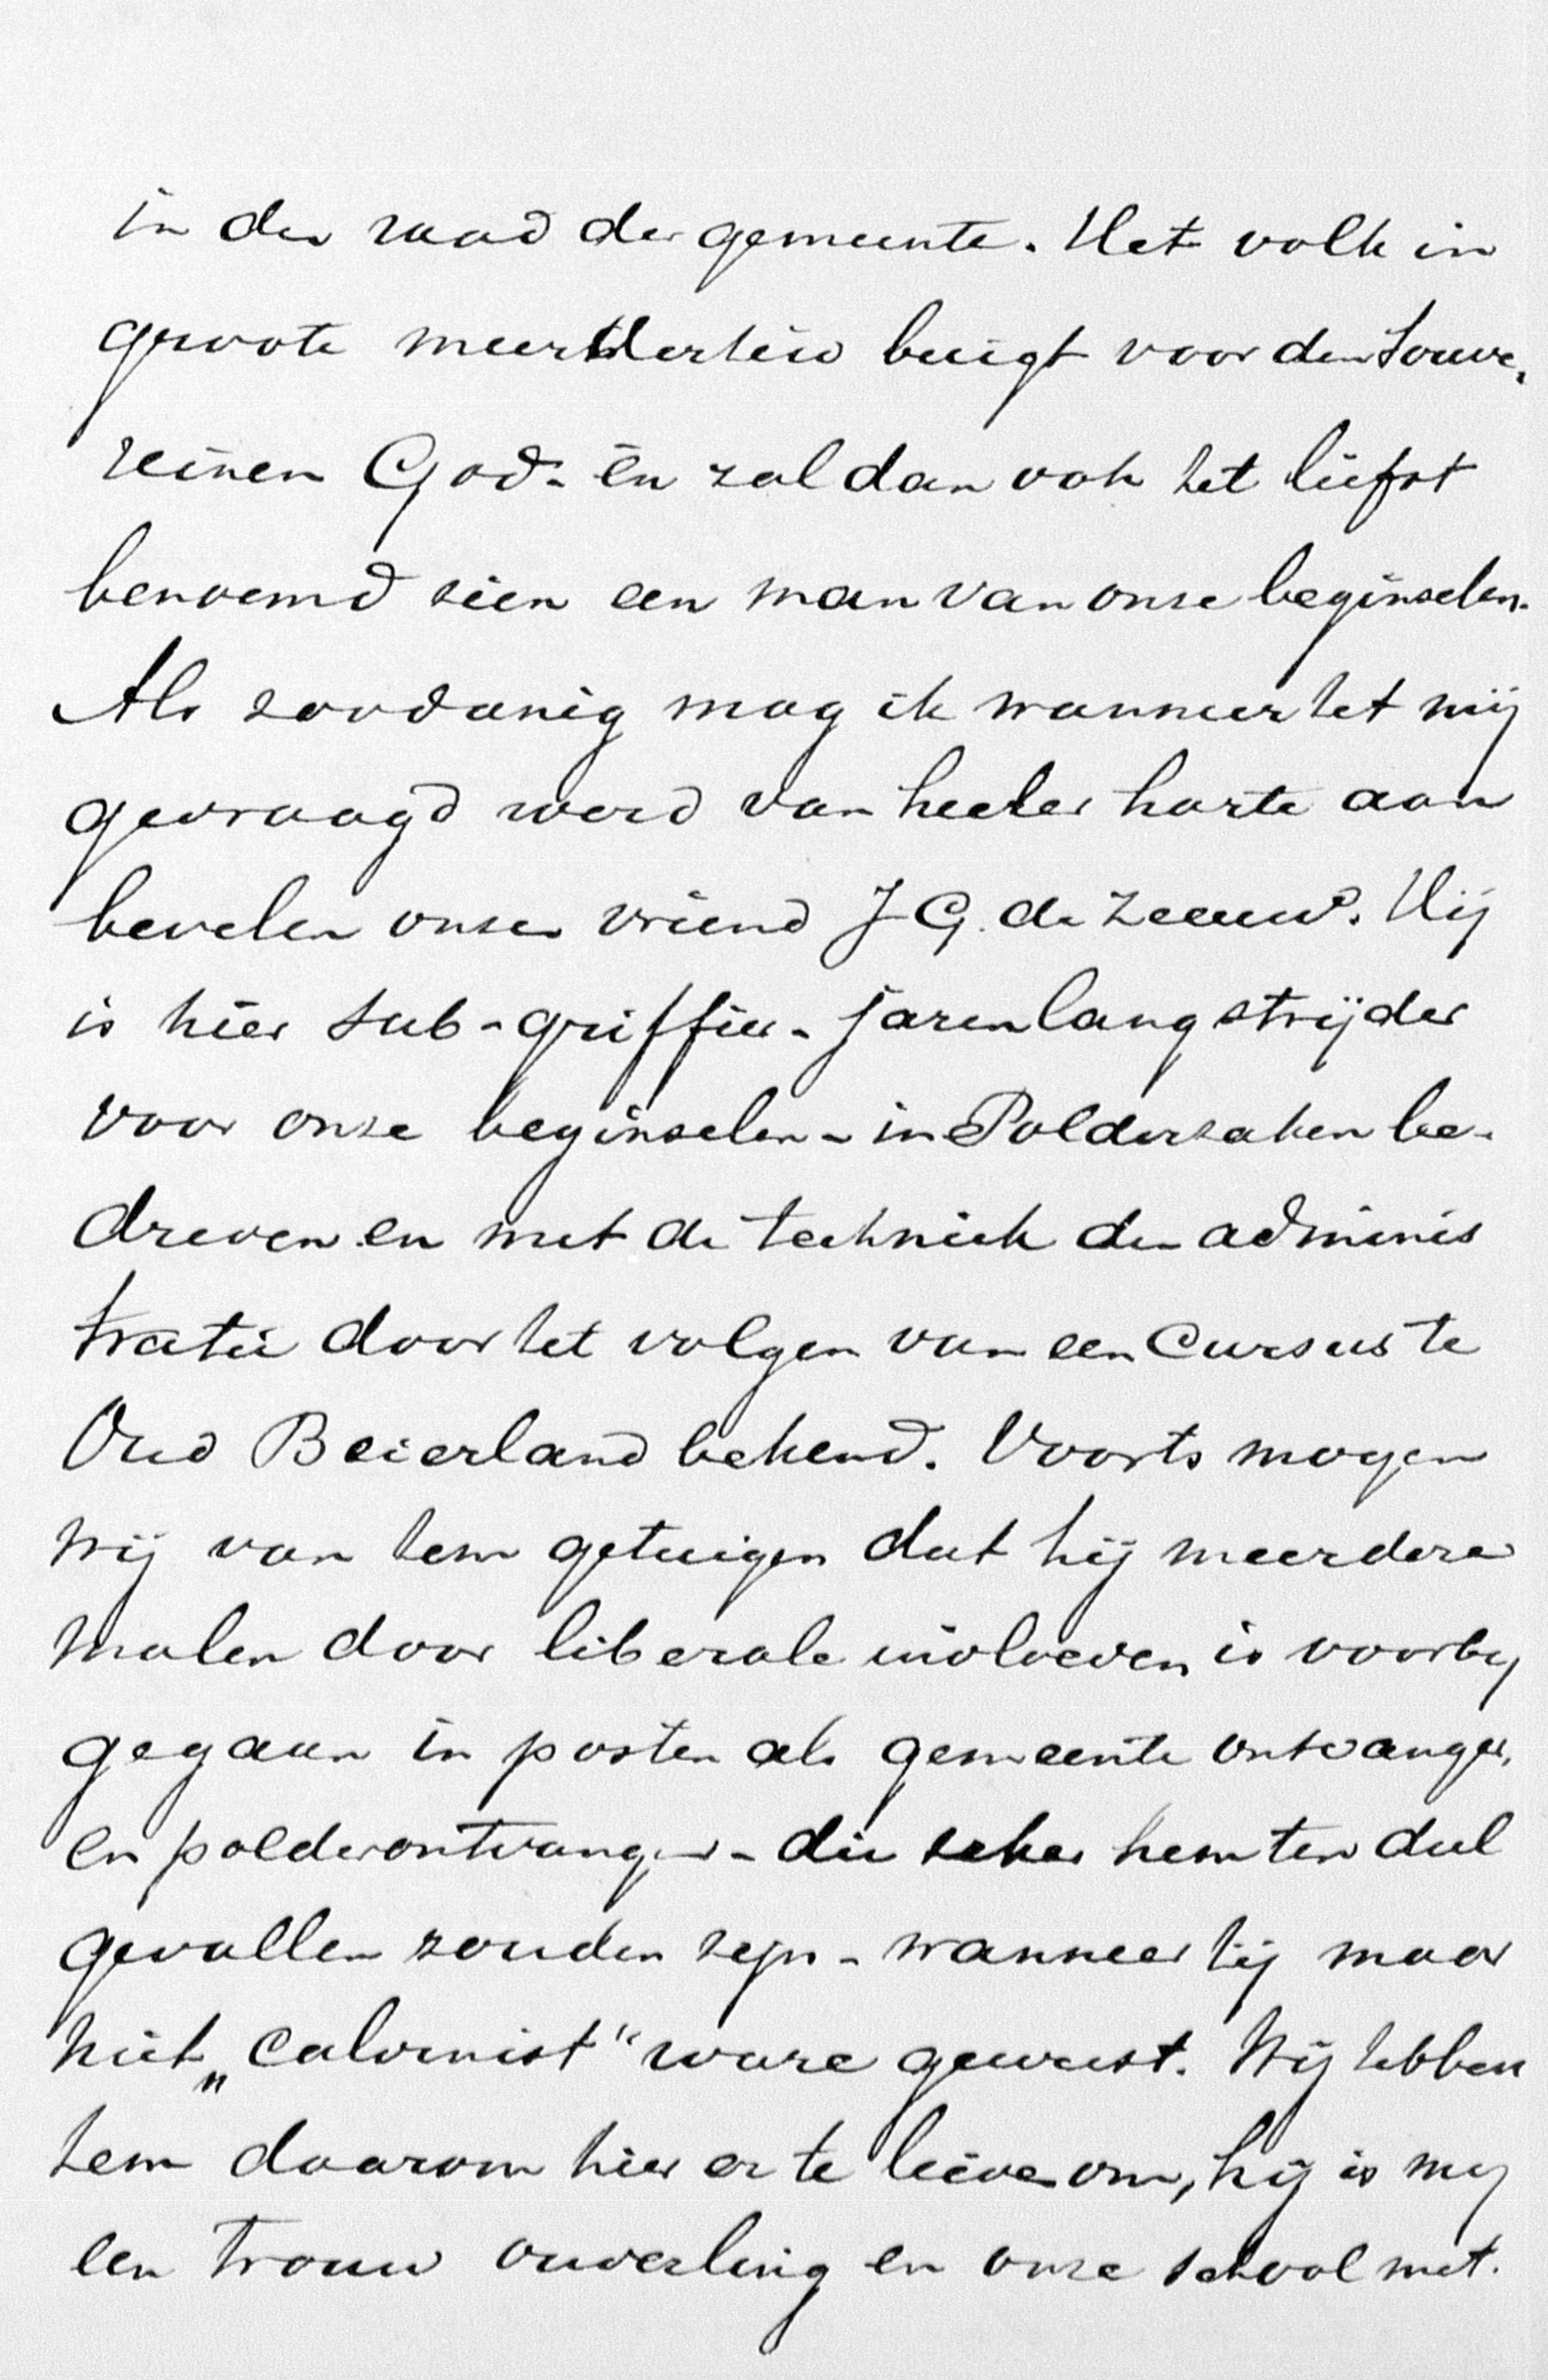 in den raad der gemeente. Het volk in
groote meerderheid buigt voor den Souve-
reinen God - en zal dan ook het liefst
benoemd zien een man van onze beginselen.
Als zoodanig mag ik wanneer het mij
gevraagd werd van heeler harte aan
bevelen onzen vriend J G. de Zeeuw. Hij
is hier sub-griffier - jarenlang strijder
voor onze beginselen - in Polderzaken be-
dreven en met de techniek der adminis
tratie door het volgen van een Cursus te
Oud Beierland bekend. Voorts mogen
wij van hem getuigen dat hij meerdere
malen door liberale invloeden is voorby
gegaan in posten als gemeente ontvanger,
en polderontvanger - die zeker hem ten deel
gevallen zouden zijn - wanneer hij maar
niet „Calvinist" ware geweest. Wij hebben
hem daarom hier er te liever om, hij is my
een trouw ouderling en onze school met.